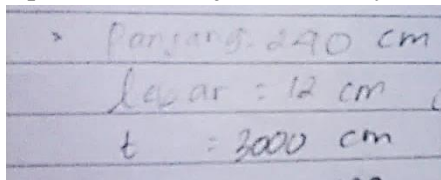 > Panjang = 240 cm
lebar = 12 cm
t = 3000 cm